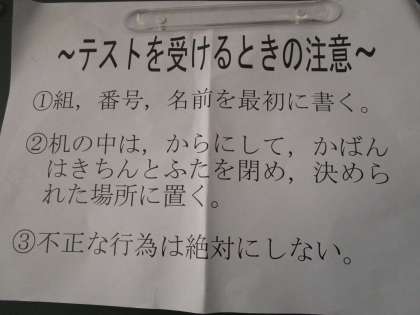 ~テストを受けるときの注意~
①組，番号，名前を最初に書く。
②机の中は，からにして，かばん
はきちんとふたを閉め，決めら
れた場所に置く。
③不正な行為は絶対にしない。